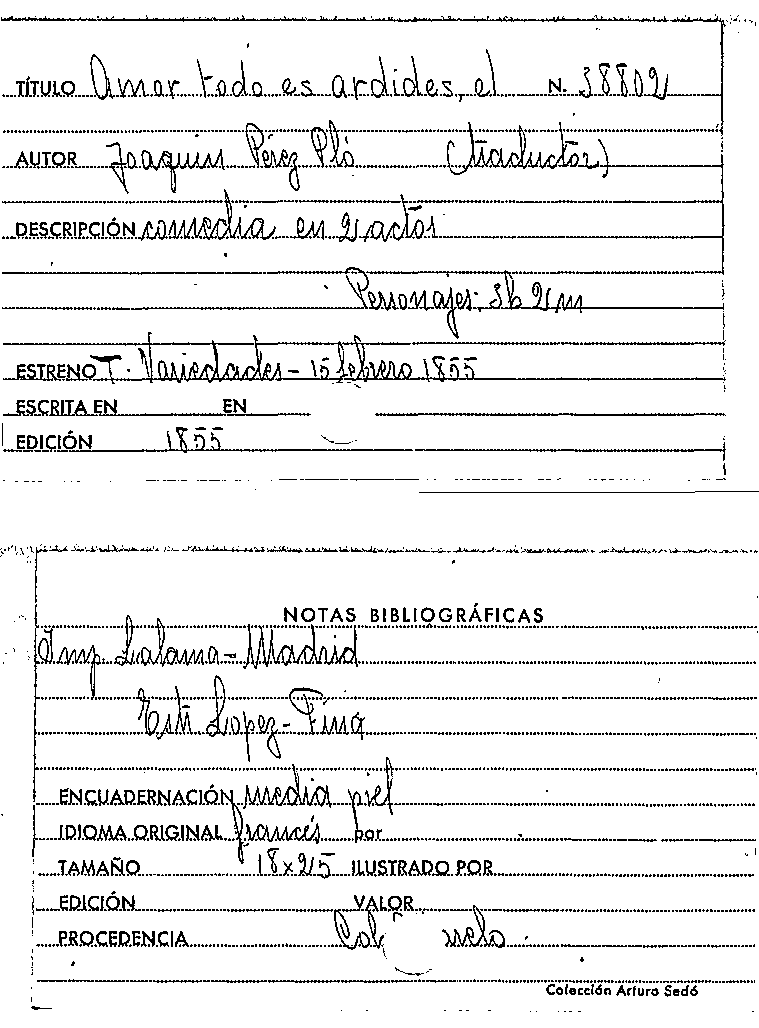 TÍTULO Amor todo es ardides, el N. 38802
AUTOR Joaquin Pérez Pló (traductor)
DESCRIPCIÓN comedia en 2 actos
Personajes: 3h 2m
ESTRENO T. Variedades - 15 febrero 1855
ESCRITA EN EN
EDICIÓN 1855
NOTAS BIBLIOGRÁFICAS
Imp Lalama - Madrid
Lopez -
ENCUADERNACIÓN media piel
IDIOMA ORIGINAL francés por
TAMAÑO 18x25 ILUSTRADO POR
EDICIÓN VALOR
PROCEDENCIA
Colección Arturo Sedó